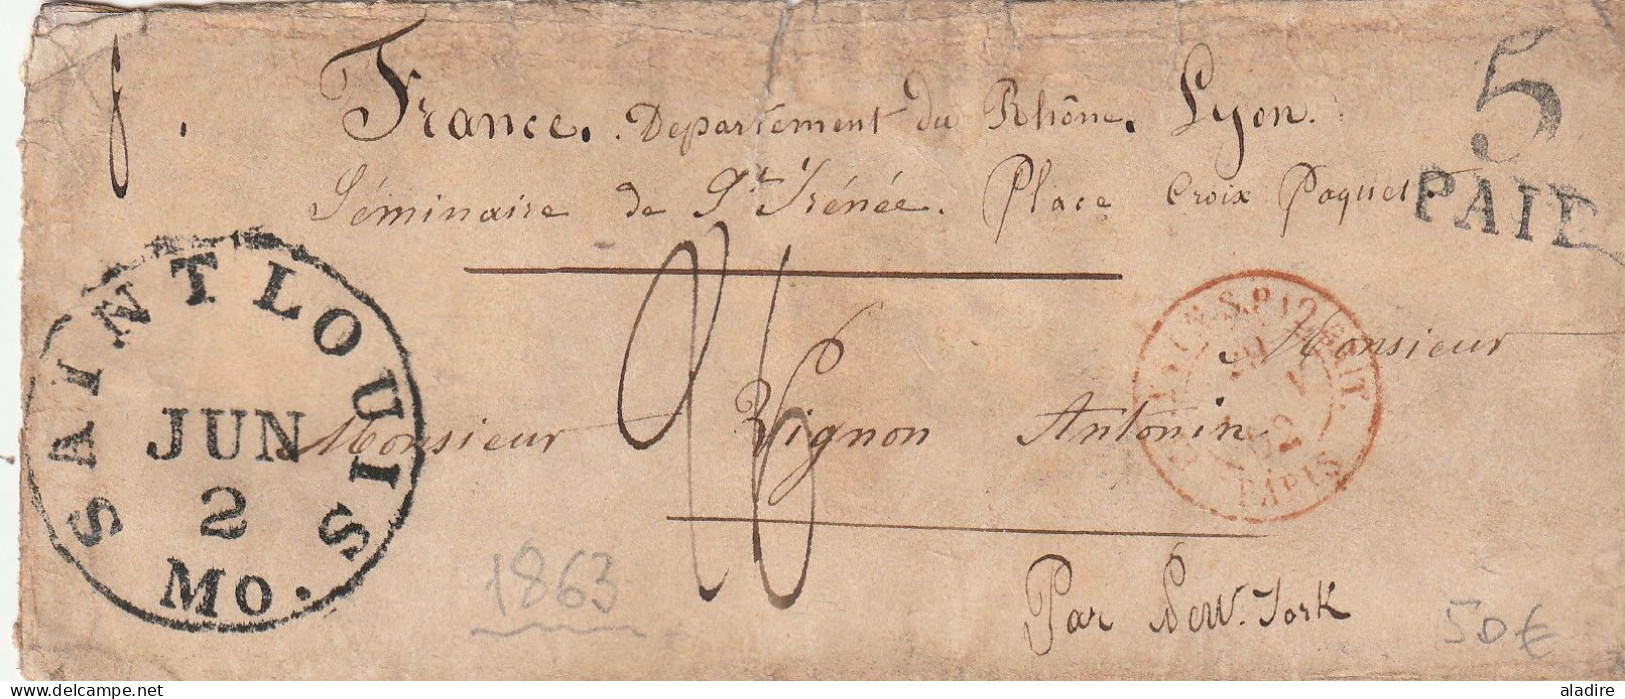 France. Departement du Rhône. Lyon.
Séminaire de St Irénée. Place Croix Paquet.
5
PAID
SAINT LOUIS
JUN
2
MO.
Monsieur
Monsieur Vignon Antonin
PARIS
1863
Par New-York
50€
delcampe.net
aladire